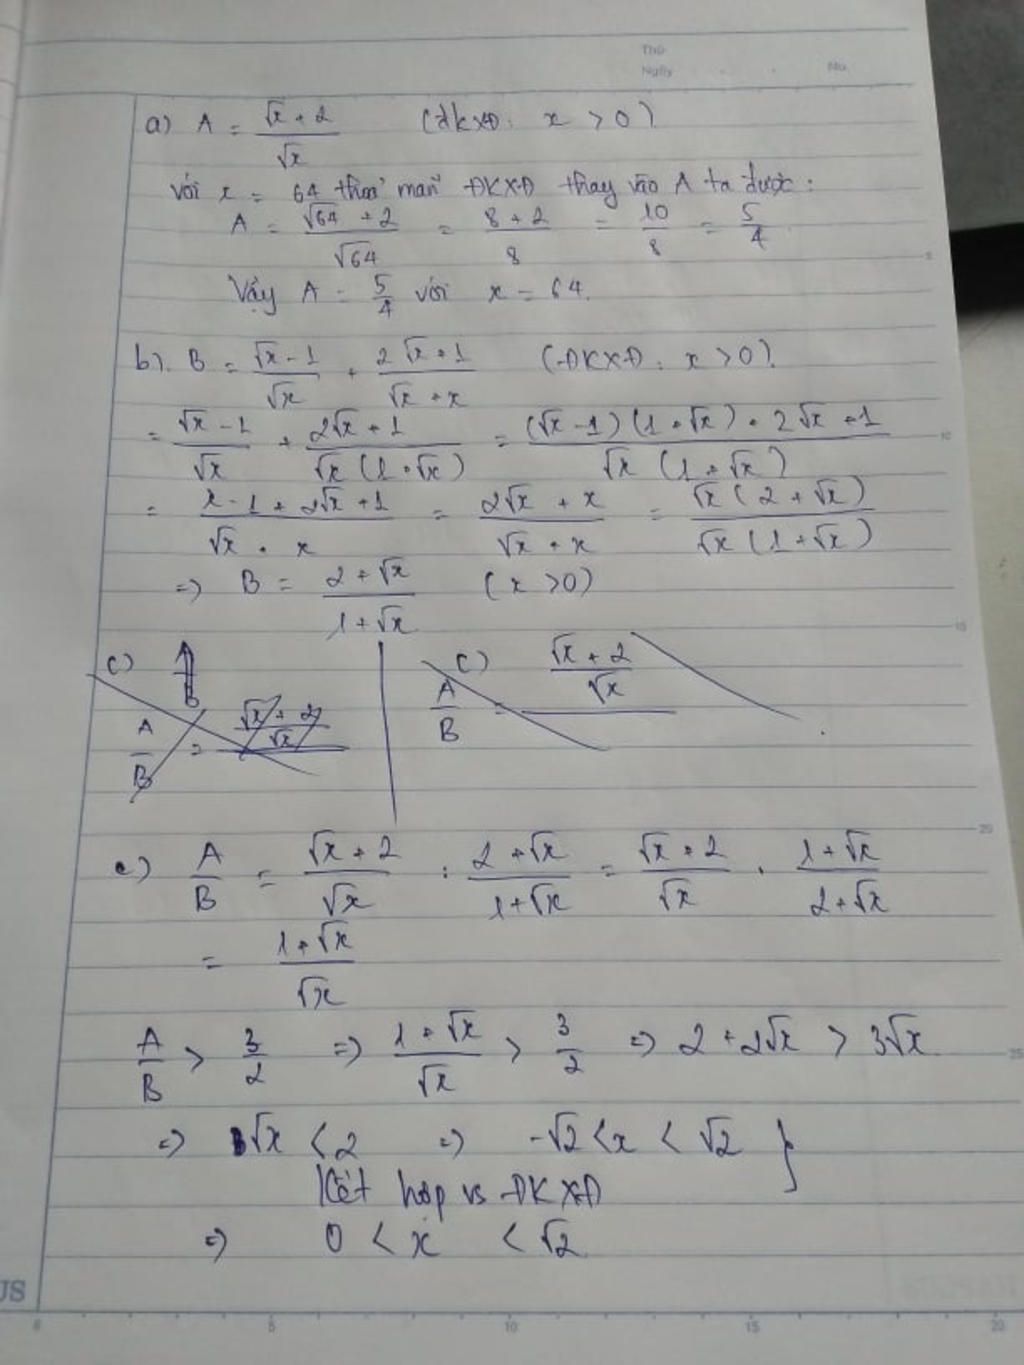 Thứ
Ngày No.
a) A = (√x + 2)/√x (đkxđ: x > 0)
Với x = 64 thoả mãn ĐKXĐ thay vào A ta được:
A = (√64 + 2)/√64 = (8 + 2)/8 = 10/8 = 5/4
Vậy A = 5/4 với x = 64.
b). B = (√x - 1)/√x + (2√x + 1)/(√x + x) (ĐKXĐ: x > 0).
= (√x - 1)/√x + (2√x + 1)/(√x(1 + √x)) = ((√x - 1)(1 + √x) + 2√x + 1)/(√x(1 + √x))
= (x - 1 + 2√x + 1)/(√x + x) = (2√x + x)/(√x + x) = (√x(2 + √x))/(√x(1 + √x))
=> B = (2 + √x)/(1 + √x) (x > 0)
c) A/B = ((√x + 2)/√x)
c) A/B = ((√x + 2)/√x)
c) A/B = (√x + 2)/√x : (2 + √x)/(1 + √x) = (√x + 2)/√x . (1 + √x)/(2 + √x)
= (1 + √x)/√x
A/B > 3/2 => (1 + √x)/√x > 3/2 => 2 + 2√x > 3√x
=> √x < 2 => -√2 < x < √2 }
Kết hợp vs ĐKXĐ
=> 0 < x < √2
US
0 5 10 15 20
5
10
15
20
25